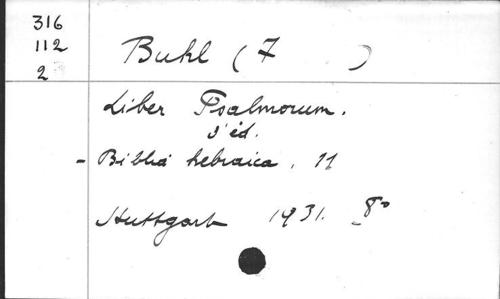 316
112
2
Buhl (F )
Liber Psalmorum.
3 éd.
- Biblia hebraica, 11
Stuttgart 1931. 8°